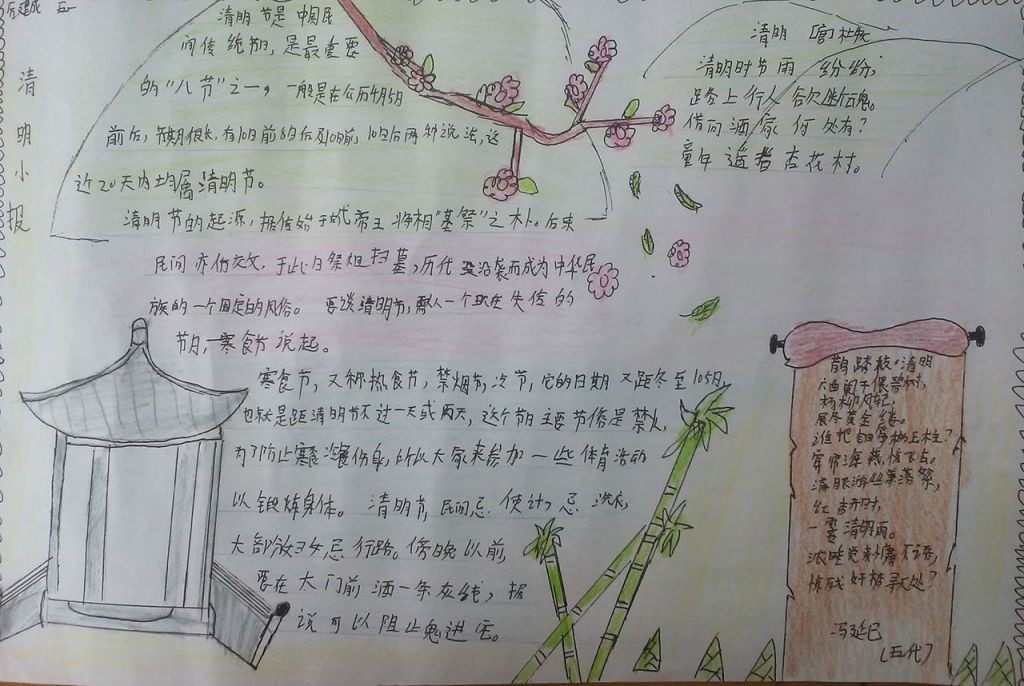 清明小报
清明节是中国民
间传统节日,是最重要
的“八节”之一,一般是在公历4月5日
前后,节期很长,有10日前8日后及10日前,10日后两种说法,这
近20天内均属清明节。
清明节的起源,据传始于古代帝王将相“墓祭”之礼。后来
民间亦仿效,于此日祭祖扫墓,历代沿袭而成为中华民
族的一个固定的风俗。要谈清明节,需从一个现在失传的
节日,寒食节说起。
寒食节,又称熟食节,禁烟节,冷节,它的日期又距冬至105日,
也就是距清明节不过一天或两天,这个节日主要节俗是禁火,
为了防止寒食冷餐伤身,所以大家来参加一些体育活动
以锻炼身体。清明节,民间忌使针,忌洗衣,
大部分妇女忌行路。傍晚以前,
要在大门前洒一条灰线,据
说可以阻止鬼进宅。
清明 [唐]杜牧
清明时节雨纷纷,
路上行人欲断魂。
借问酒家何处有?
童年遥指杏花村。
鹊踏枝·清明
六曲阑干偎碧树,
杨柳风轻,
展尽黄金缕。
谁把钿筝移玉柱?
穿帘海燕惊飞去。
满眼游丝兼落絮,
红杏开时,
一霎清明雨。
浓睡觉来慵不语,
惊残好梦寻处?
冯延巳
(五代)